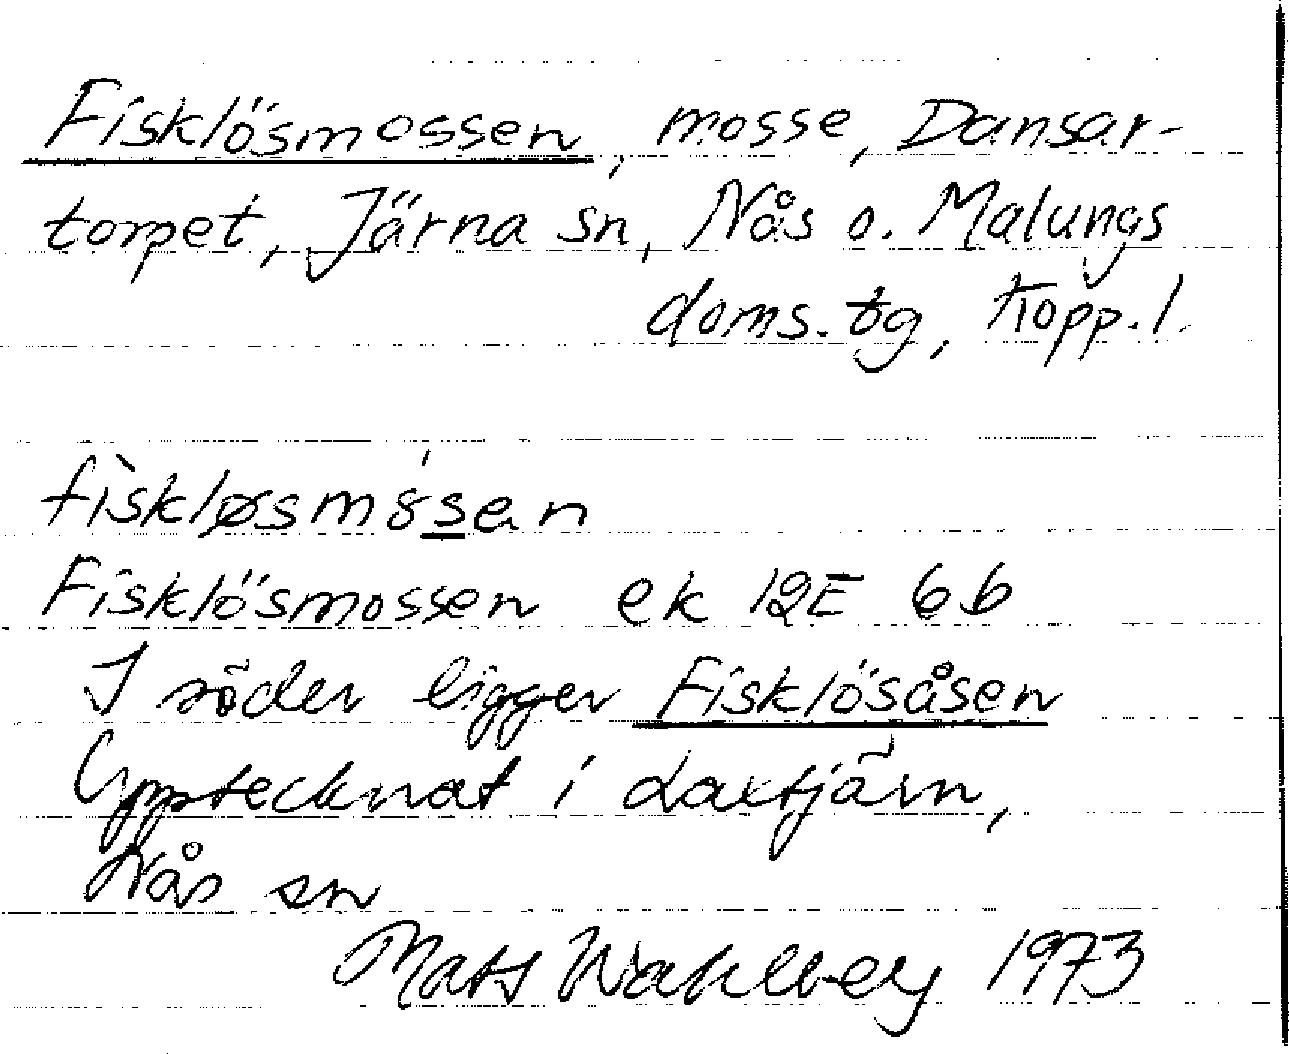 Fisklösmossen, mosse, Dansar-
torpet, Järna sn, Nås o. Malungs
doms. tg, Kopp. l.
fìskløsmó̀sen
Fisklösmossen ek 12E 6b
I söder ligger Fisklösåsen
Upptecknat i Laxtjärn,
Nås sn
Mats Wahlberg 1973